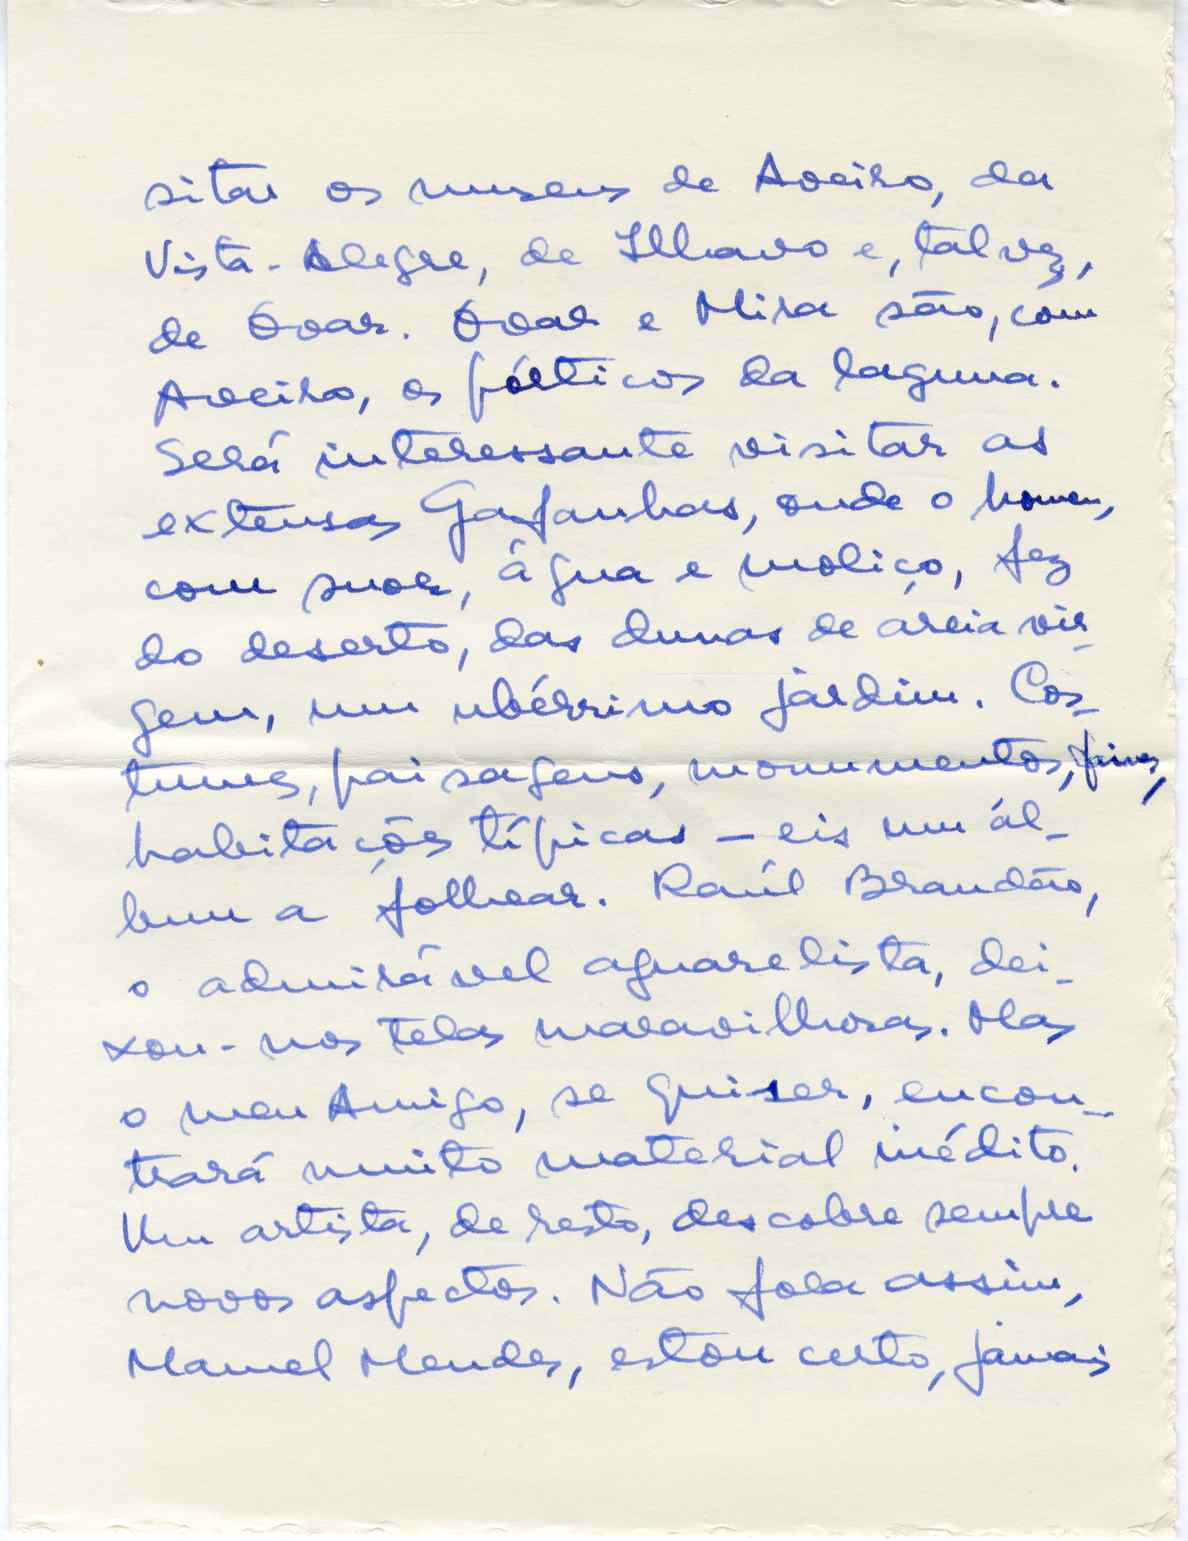 sitar os museus de Aveiro, da
Vista-Alegre, de Ílhavo e, talvez,
de Ovar. Ovar e Mira são, com
Aveiro, os pórticos da laguna.
Será interessante visitar as
extensas Gafanhas, onde o homem,
com suor, água e moliço, fez
do deserto, das dunas de areia vir-
gem, um ubérrimo jardim. Cos-
tumes, paisagens, monumentos, fainas,
habitações típicas - eis um ál-
bum a folhear. Raúl Brandão,
o admirável aguarelista, dei-
xou-nos telas maravilhosas. Mas
o meu Amigo, se quiser, encon-
trará muito material inédito.
Um artista, de resto, descobre sempre
novos aspectos. Não fora assim,
Manuel Mendes, estou certo, jamais